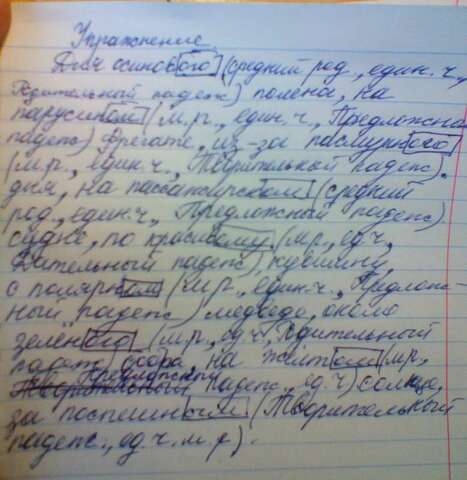 Упражнение
Для осинового (средний род, един.ч.,
Родительный падеж) полена, на
парусном (м.р., един.ч., Предложный
падеж) фрегате, из-за пасмурного
(м.р., един.ч., Творительный падеж)
дня, на пассажирском (средний
род, един.ч., Предложный падеж)
судне, по красивому (м.р., ед.ч.,
Дательный падеж) кувшину,
о полярном (м.р., един.ч., Предлож-
ный падеж) медведе, около
зелёного (м.р., ед.ч., Родительный
падеж) на желтом (м.р.,
падеж, ед.ч) солнце,
за поспешным (Творительный
падеж., ед.ч. м.р).